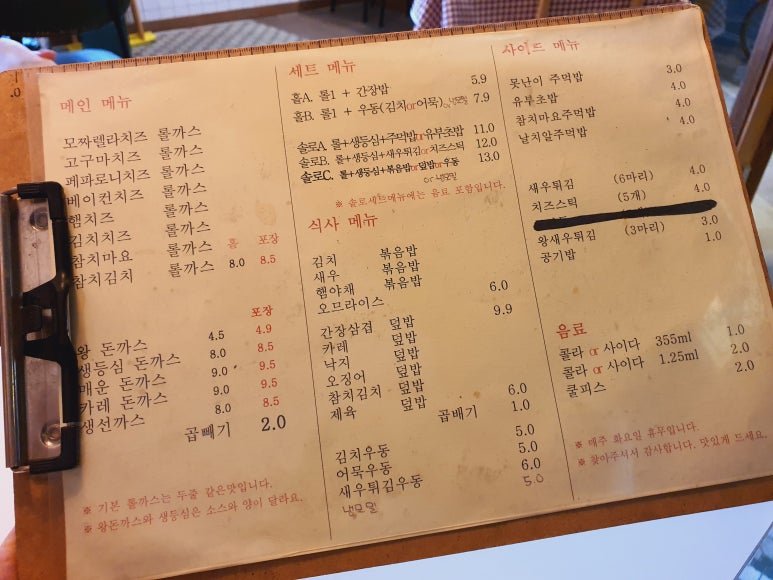 메인 메뉴
모짜렐라치즈 롤까스
고구마치즈 롤까스
페파로니치즈 롤까스
베이컨치즈 롤까스
햄치즈 롤까스
김치치즈 롤까스
참치마요 롤까스 홀 포장
참치김치 롤까스 8.0 8.5
포장
왕 돈까스 4.5 4.9
생등심 돈까스 8.0 8.5
매운 돈까스 9.0 9.5
카레 돈까스 9.0 9.5
생선까스 8.0 8.5
곱빼기 2.0
※ 기본 롤까스는 두줄 같은맛입니다.
※ 왕돈까스와 생등심은 소스와 양이 달라요.
세트 메뉴
홀A. 롤1 + 간장밥 5.9
홀B. 롤1 + 우동(김치or어묵)or냉모밀 7.9
솔로A. 롤+생등심+주먹밥or유부초밥 11.0
솔로B. 롤+생등심+새우튀김or치즈스틱 12.0
솔로C. 롤+생등심+볶음밥or덮밥or우동 13.0
or 냉모밀
※ 솔로세트메뉴에는 음료 포함입니다.
식사 메뉴
김치 볶음밥
새우 볶음밥
햄야채 볶음밥
오므라이스 6.0
간장삼겹 덮밥 9.9
카레 덮밥
낙지 덮밥
오징어 덮밥
참치김치 덮밥
제육 덮밥 6.0
곱배기 1.0
김치우동 5.0
어묵우동 5.0
새우튀김우동 6.0
냉모밀 5.0
사이드 메뉴
못난이 주먹밥 3.0
유부초밥 4.0
참치마요주먹밥 4.0
날치알주먹밥 4.0
새우튀김 (6마리) 4.0
치즈스틱 (5개) 4.0
왕새우튀김 (3마리) 3.0
공기밥 1.0
음료
콜라 or 사이다 355ml 1.0
콜라 or 사이다 1.25ml 2.0
쿨피스 2.0
※ 매주 화요일 휴무입니다.
※ 찾아주셔서 감사합니다. 맛있게 드세요.